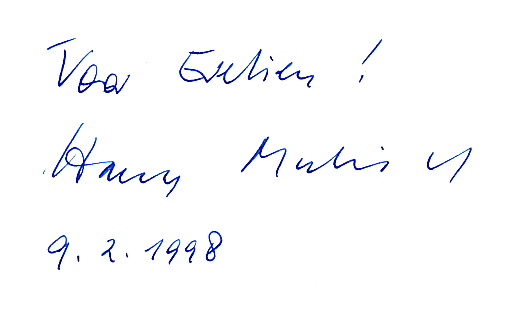 Voor Evelien!
Harry Mulisch
9.2.1998